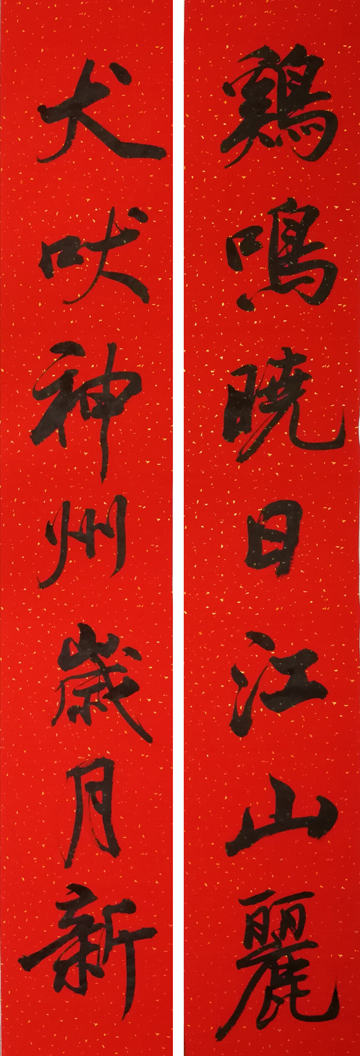 鷄鳴曉日江山麗
犬吠神州歲月新